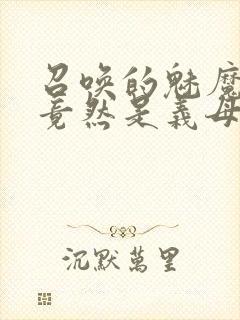 召唤的魅魔
竟然是義母
沉默萬里